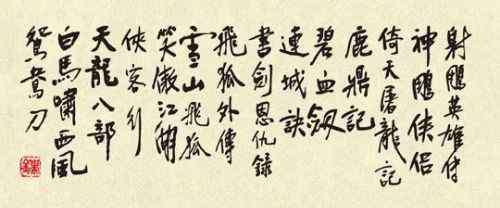 射鵰英雄传
神鵰侠侣
倚天屠龍記
鹿鼎記
碧血劔
連城訣
書劍恩仇録
飛狐外傳
雪山飛狐
笑傲江湖
俠客行
天龍八部
白馬嘯西風
鴛鴦刀